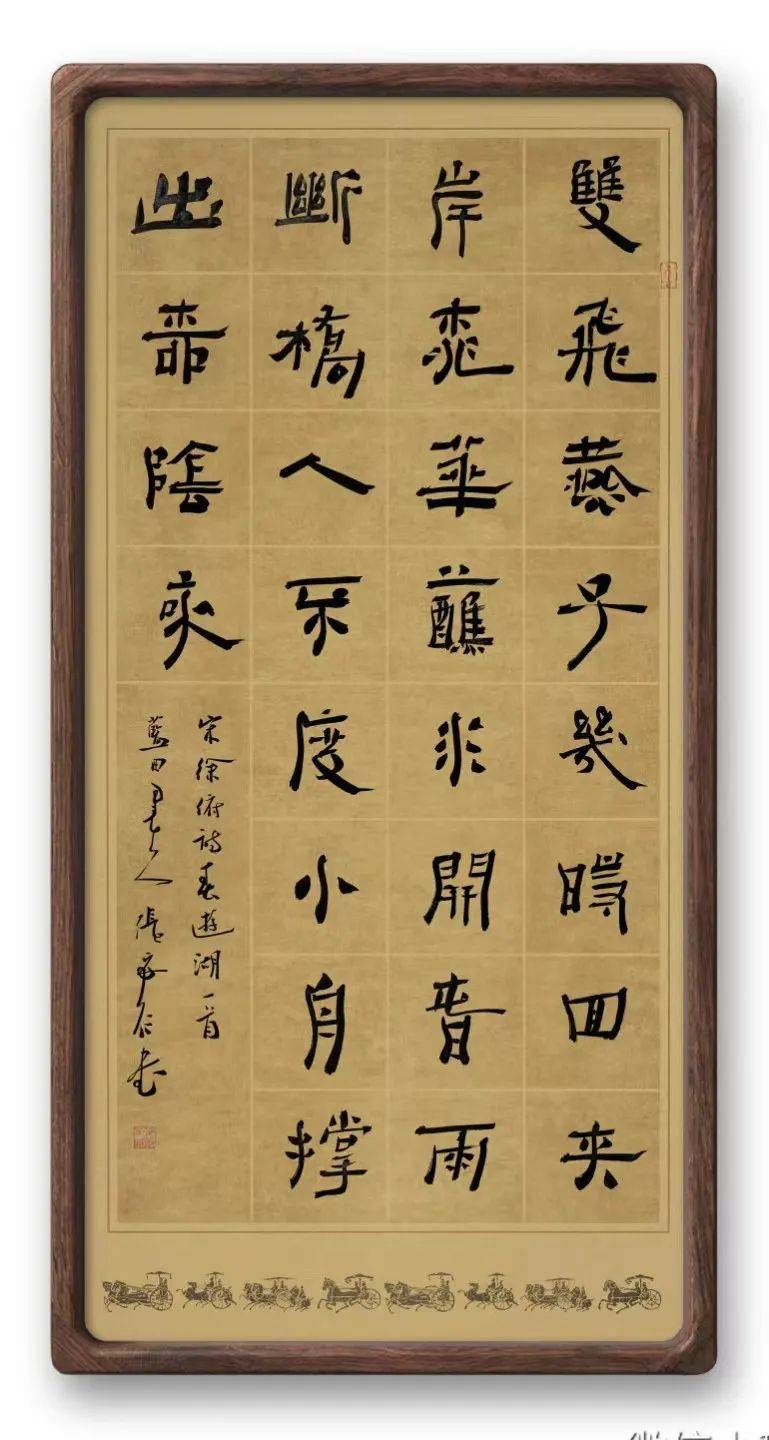 雙飛燕子幾時回夾
岸桃華蘸水開春雨
斷橋人不度小舟撑
出柳陰來
宋徐俯詩春遊湖一首
藍田人張書